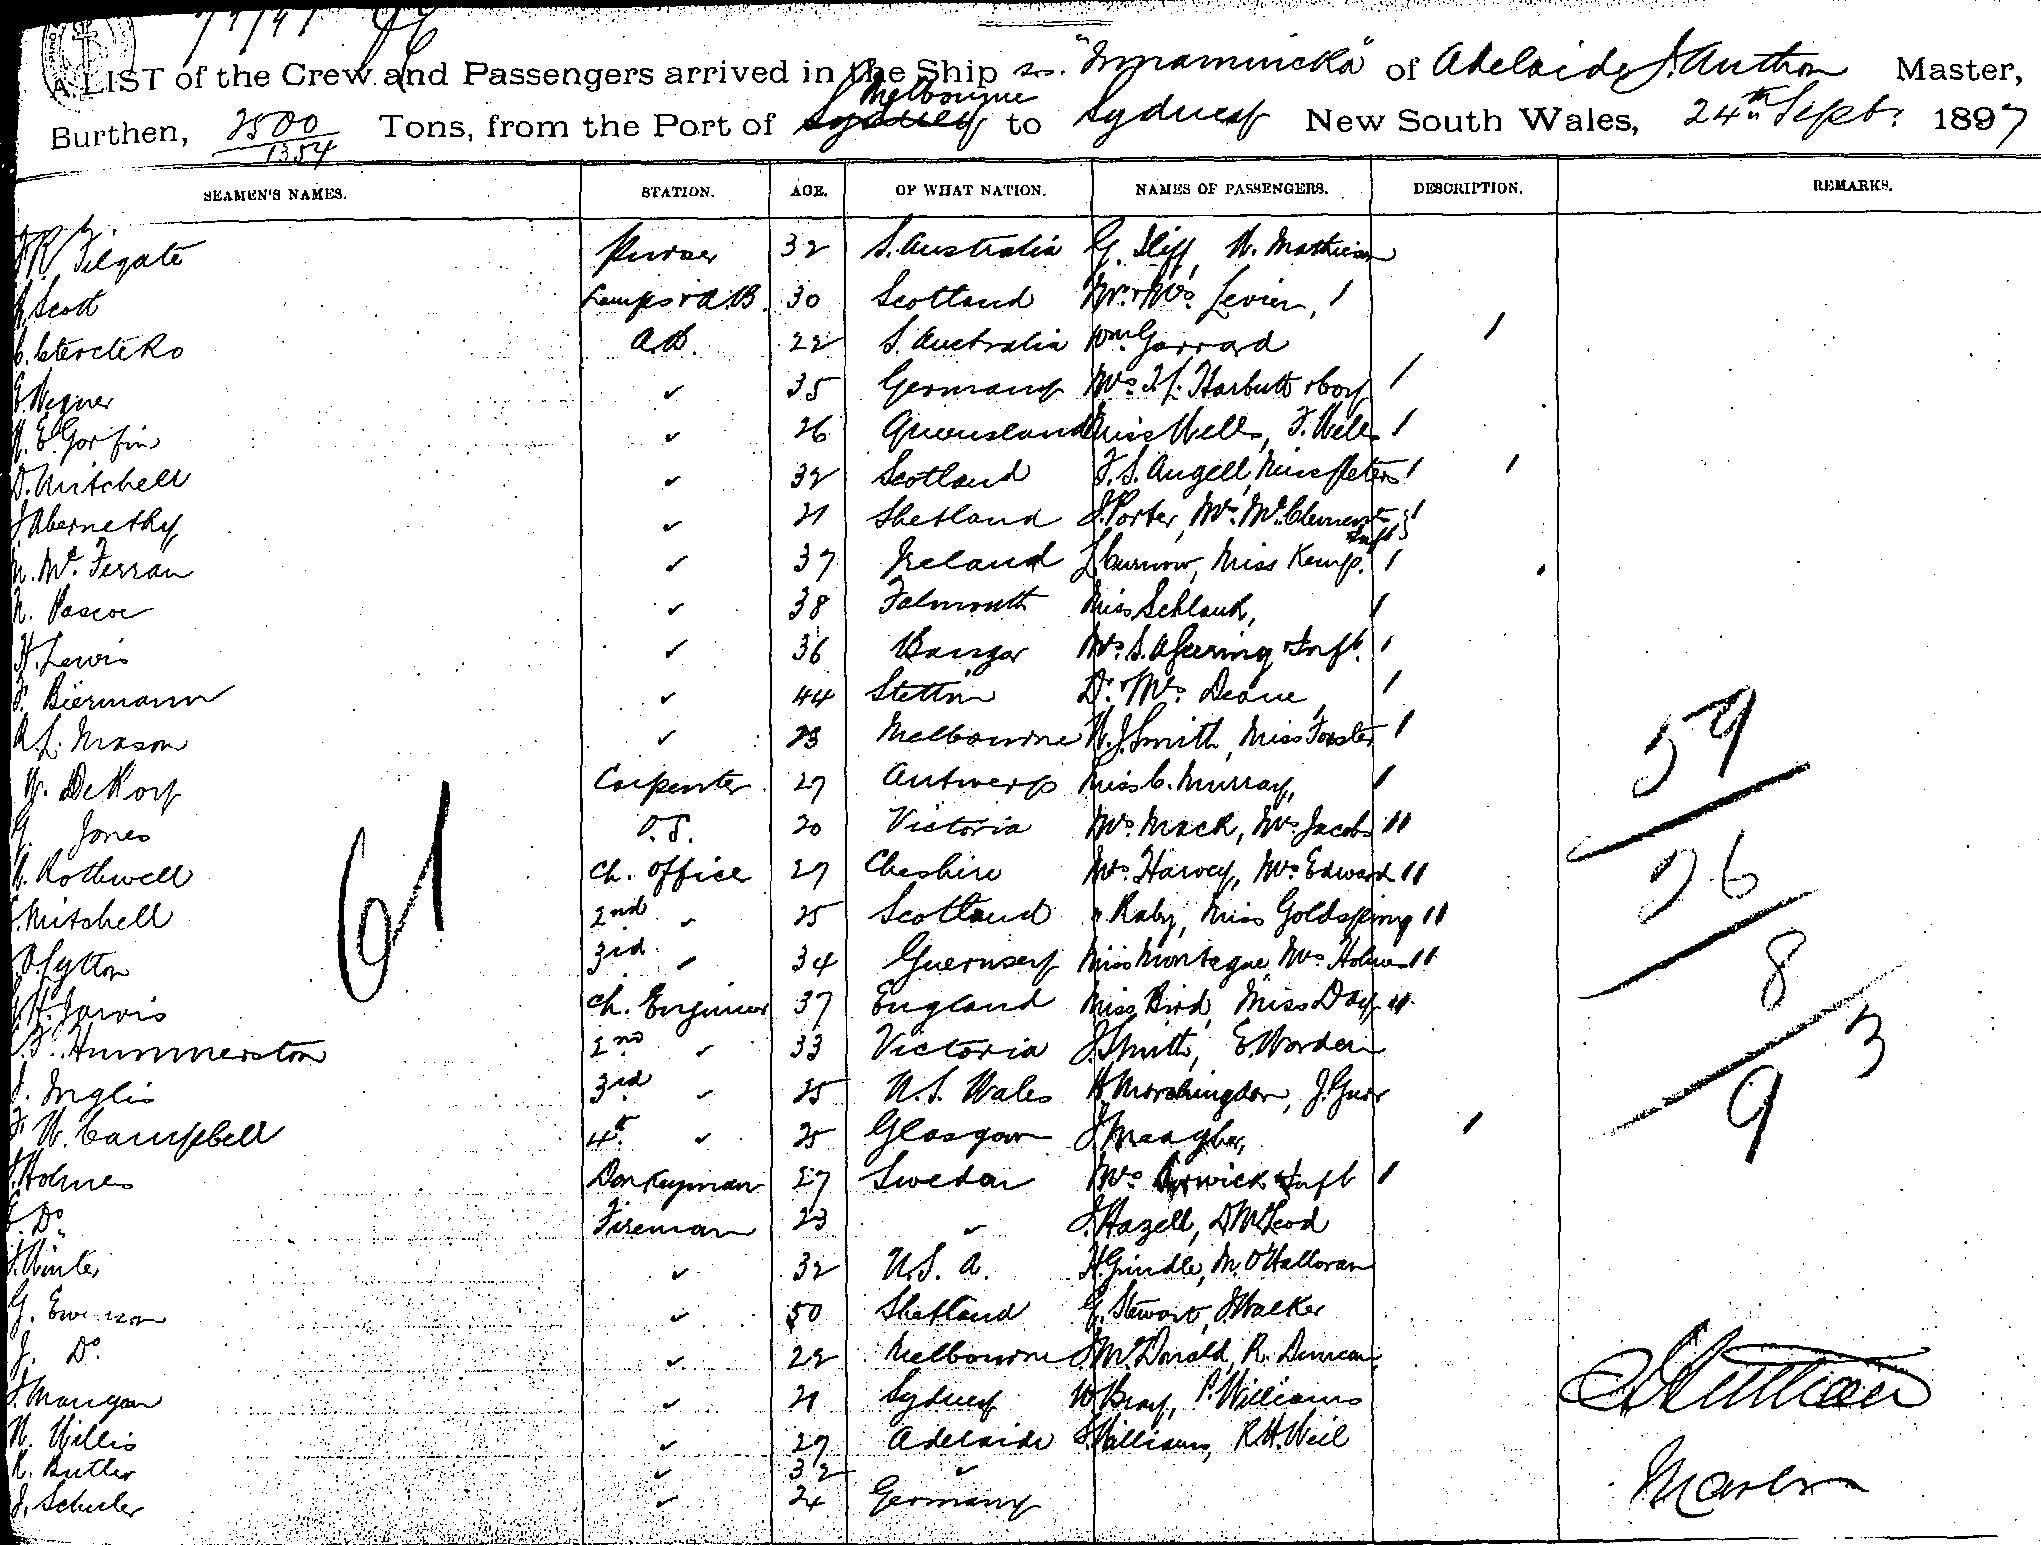 7/9/97
A LIST of the Crew and Passengers arrived in the Ship s.s. "Innamincka" of Adelaide, Master,
Melbourne
Burthen, 2500/1354 Tons, from the Port of Sydney to Sydney New South Wales, 24th Sept. 1897
SEAMEN'S NAMES. STATION. AGE. OF WHAT NATION. NAMES OF PASSENGERS. DESCRIPTION. REMARKS.
Filgate Purser 32 S. Australia G. Iliff, W. Mathieson
Scott Lamps & A.B. 30 Scotland Mr. & Mrs. Levien, 1
A.B. 22 S. Australia Wm. Garrard 1
E. Wegner " 35 Germany Mrs. Harbutt & boy 1
W. E. Gorfin " 26 Queensland Miss Wells, F. Wells 1
D. Mitchell " 32 Scotland F. S. Angell, Miss Peters 1 1
J. Abernethy " 21 Shetland J. Porter, Mrs. McClements & Inft 1
N. McFerran " 37 Ireland L. Curnow, Miss Kemp. 1
N. Pascoe " 38 Falmouth Miss Schlank, 1
H. Lewis " 36 Bangor Mrs. S. A. Geering & Inft. 1
F. Biermann " 44 Stettin Dr. & Mrs. Deane 1
A. L. Mason " 23 Melbourne W. J. Smith, Miss Forster 1
De Korf Carpenter 27 Antwerp Miss C. Murray, 1
G. Jones O.S. 20 Victoria Mrs. Mack, Mrs. Jacobs 11
Rothwell Ch. Officer 27 Cheshire Mrs. Harvey, Mrs. Edward 11
Mitchell 2nd " 25 Scotland " Raby, Miss Goldspring 11
Lytton 3rd " 34 Guernsey Miss Montague, Mrs. Holmes 11
H. Jarvis Ch. Engineer 37 England Miss Bird, Miss Day 11
F. Hummerston 2nd " 33 Victoria J. Smith, E. Worden
Inglis 3rd " 25 N. S. Wales
F. W. Campbell 4th " 25 Glasgow J. Meagher, 1
Holmes Donkeyman 27 Sweden Mrs. & Inft 1
Do. Fireman 23 " J. Hazell, D. McLeod
Winter " 32 U.S.A. H. Grindle, M. O'Halloran
G. " 50 Shetland G. Stewart, J. Walker
J. Do. " 22 Melbourne J. McDonald, R. Duncan,
J. Mangan " 21 Sydney W. Bray, P. Williams
W. Willis " 27 Adelaide J. Williams, R. H. Weil
R. Butler " 32 "
J. Schuler " 24 Germany
61
59
26
8
3
9